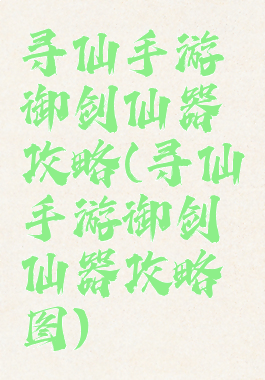 寻仙手游
御剑仙器
攻略(寻仙
手游御剑
仙器攻略
图)